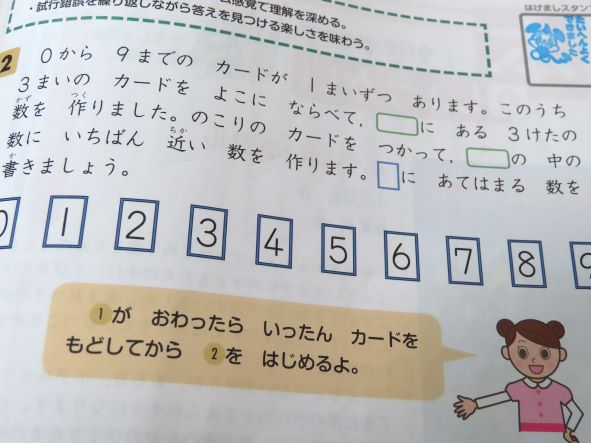 ・試行錯誤を繰り返しながら答えを見つける楽しさを味わう。
はげましスタンプ
たいへんよく
できました
2 0から 9までの カードが 1まいずつ あります。このうち
3まいの カードを よこに ならべて，□に ある 3けたの
数を 作りました。のこりの カードを つかって，□の 中の
数に いちばん 近い 数を 作ります。□に あてはまる 数を
書きましょう。
0 1 2 3 4 5 6 7 8 9
1が おわったら いったん カードを
もどしてから 2を はじめるよ。